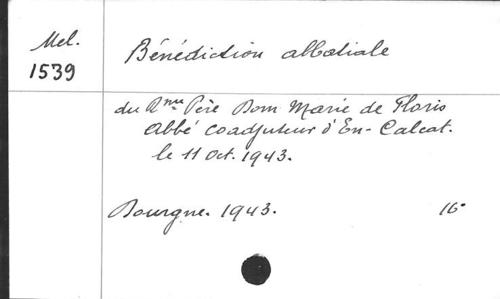 Mel.
1539
Bénédiction abbatiale
du Rme Père Dom Marie de Floris
Abbé coadjuteur d'En-Calcat.
le 11 Oct. 1943.
Bourgne. 1943. 16°